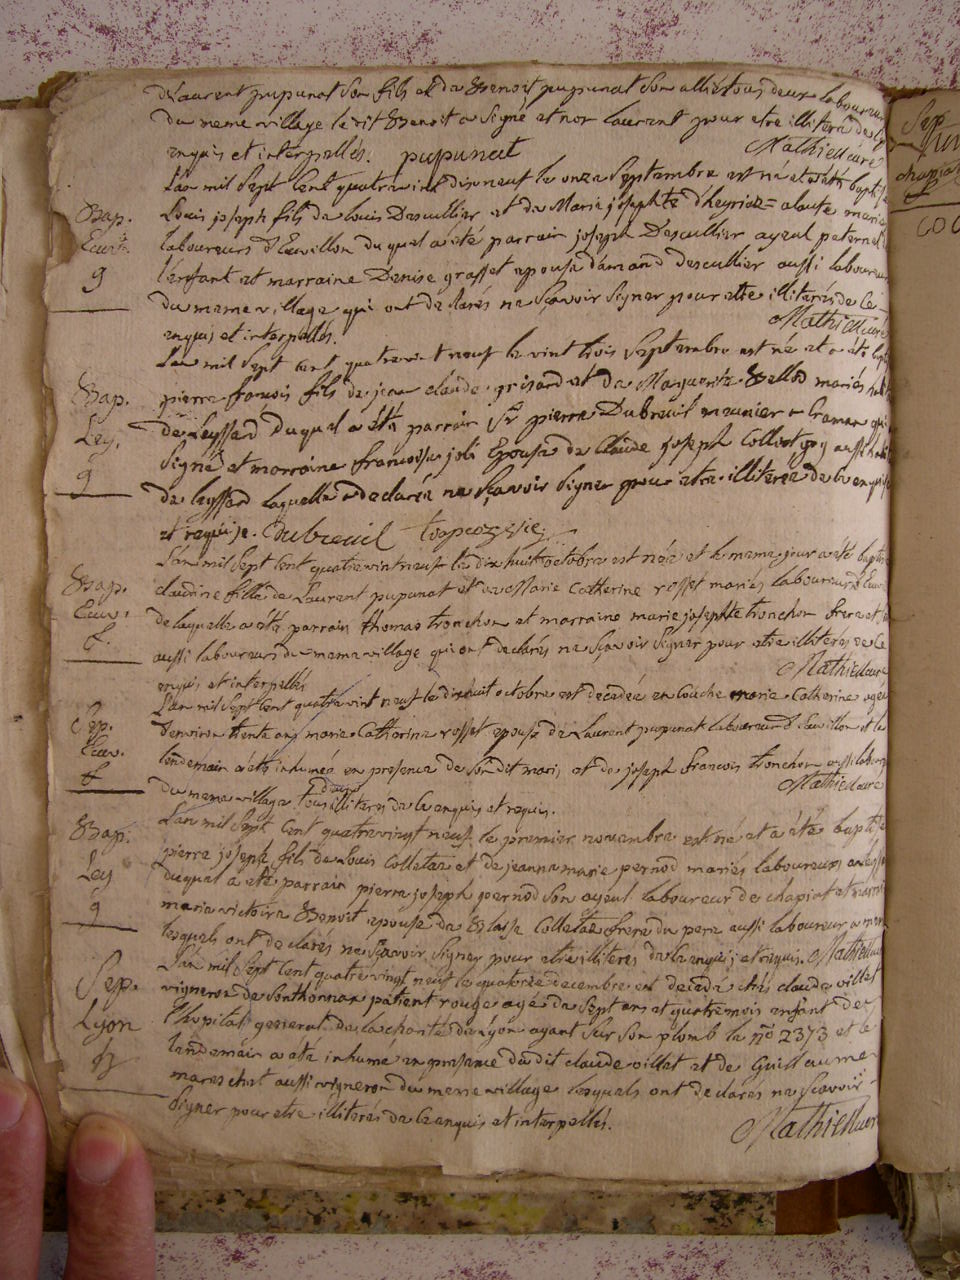 de Laurent pupunat son fils et de Benoit pupunat son allié tous deux laboureurs
du meme village ledit Benoit a signé et non laurent pour etre illiteré de ce
enquis et interpellés. pupunat Mathieu curé
L'an mil sept cent quatrevint dixneuf le onze Septembre est né et a été baptisé
Bap.
Louis joseph fils de louis Descullier et de Marie josephte d'heyriez aloute mariés
laboureurs d'Euvillon duquel a été parrain joseph Descullier ayeul paternel
g
l'enfant et marraine Denise grasset epouse d'amand descullier aussi laboureur
du meme village qui ont declarés ne sçavoir signer pour etre illiterés de ce
enquis et interpellés. Mathieu curé
L'an mil sept cent quatrevint neuf le vint trois Septembre est né et a été bapt
Bap.
pierre francois fils de jean claude grisard et de Marguerite Ballod mariés
Ley.
de Leyssard duquel a été parrain Sr pierre Dubreuil meunier a qui
signé et marraine francoise joli Epouse de Claude joseph Collet aussi
g
de leyssard laquelle a declarée ne sçavoir signer pour etre illiterée de ce enquise
et requise. Dubreuil
L'an mil sept cent quatrevint neuf le dix huit octobre est née et le meme jour a été bapti
Bap.
claudine fille de Laurent pupunat et de Marie Catherine rosset mariés laboureurs
Euv.
de laquelle a été parrain thomas tronchon et marraine marie josephte tronchon frere et
f.
aussi laboureurs du meme village qui ont declarés ne sçavoir signer pour etre illiterés de ce
enquis et interpellés Mathieu curé
L'an mil sept cent quatre vint neuf le dixhuit octobre est decedée en couche marie Catherine agée
Sep.
d'environ trente ans marie Catherine rosset epouse de Laurent pupunat laboureur d'Euvillon et le
Euv.
lendemain a été inhumée en presence de son dit mari, et de joseph francois tronchon aussi laboureur
f
du meme village tous deux illiterés de ce enquis et requis. Mathieu curé
L'an mil sept cent quatrevingt neuf le premier novembre est né et a été baptisé
Bap.
pierre joseph fils de Louis Colletaz et de jeanne marie pernod mariés laboureurs
Ley
duquel a été parrain pierre joseph pernod son ayeul laboureur de chapiat et marraine
g
marie victoire Benoit epouse de Blaise Colletaz frere du pere aussi laboureur a
lesquels ont declarés ne sçavoir signer pour etre illiterés de ce enquis et requis. Mathieu curé
L'an mil sept cent quatre vingt neuf le quatorze decembre est decedé chés claude villet
Sep.
vigneron de Sonthonnax patient rouge agé de sept ans et quatre mois enfant de
Lyon
l'hopital general de la charité de Lyon ayant sur son plomb le no 2373 et le
lendemain a été inhumé en presence dudit claude villet et de Guillaume
marechat aussi vigneron du meme village lesquels ont declarés ne sçavoir
signer pour etre illiterés de ce enquis et interpellés. Mathieu curé